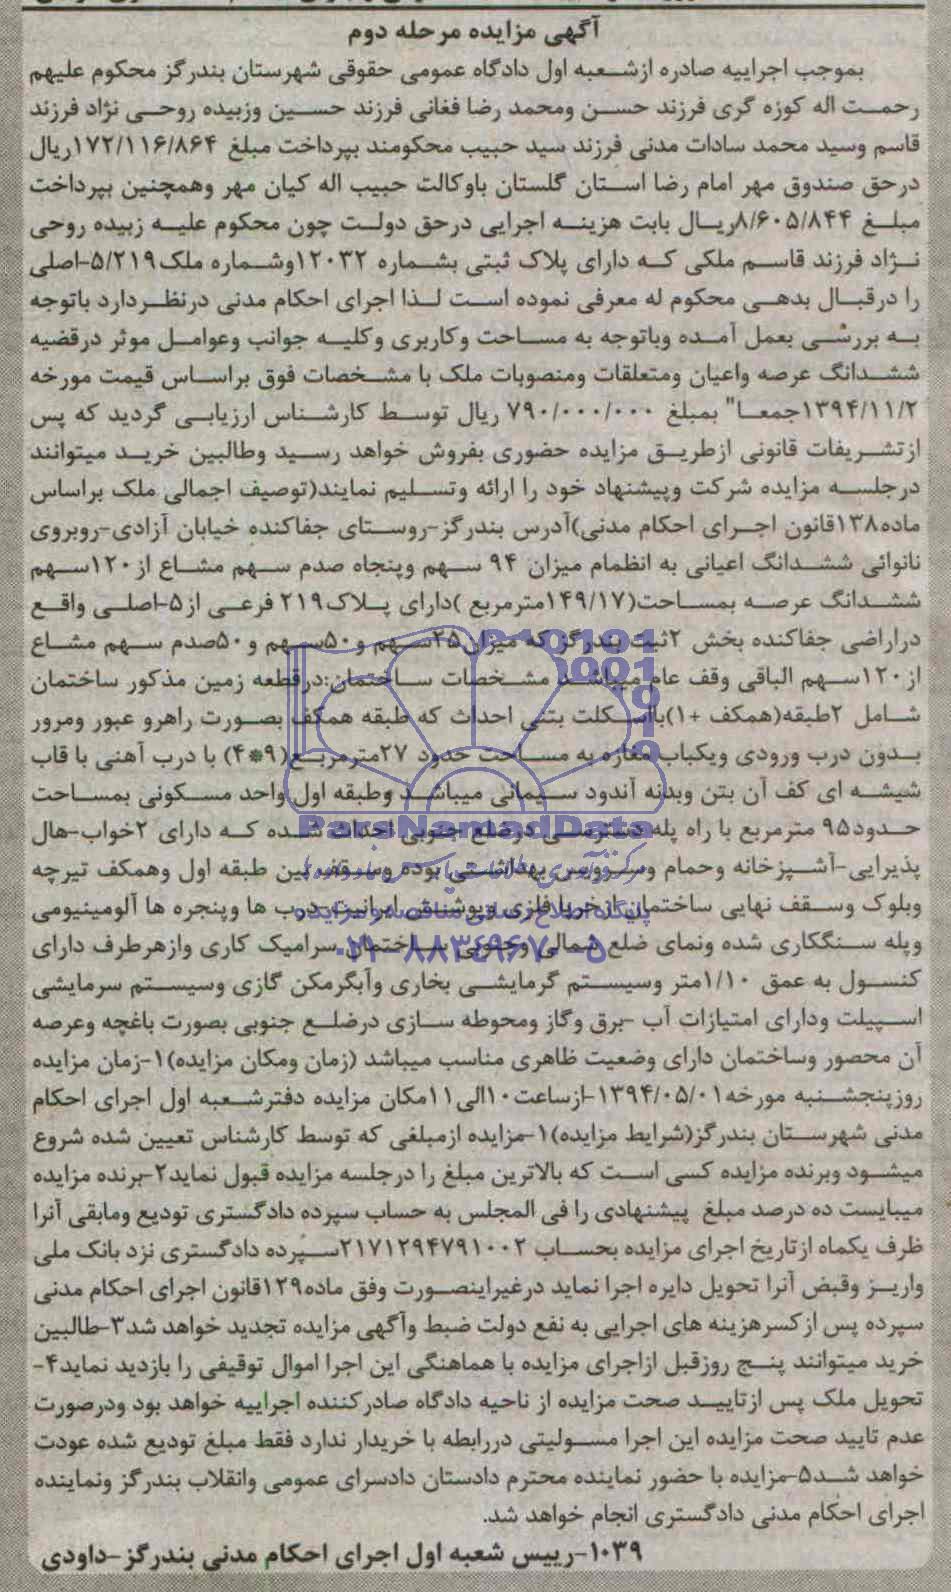 آگهی مزایده مرحله دوم
بموجب اجراییه صادره ازشعبه اول دادگاه عمومی حقوقی شهرستان بندرگز محکوم علیهم
رحمت اله کوزه گری فرزند حسن ومحمد رضا فغانی فرزند حسین وزبیده روحی نژاد فرزند
قاسم وسید محمد سادات مدنی فرزند سید حبیب محکومند بپرداخت مبلغ ۱۷۲/۱۱۶/۸۶۴ریال
درحق صندوق مهر امام رضا استان گلستان باوکالت حبیب اله کیان مهر وهمچنین بپرداخت
مبلغ ۸/۶۰۵/۸۴۴ریال بابت هزینه اجرایی درحق دولت چون محکوم علیه زبیده روحی
نژاد فرزند قاسم ملکی که دارای پلاک ثبتی بشماره ۱۲۰۳۲وشماره ملک۵/۲۱۹-اصلی
را درقبال بدهی محکوم له معرفی نموده است لذا اجرای احکام مدنی درنظردارد باتوجه
به بررسی بعمل آمده وباتوجه به مساحت وکاربری وکلیه جوانب وعوامل موثر درقضیه
ششدانگ عرصه واعیان ومتعلقات ومنصوبات ملک با مشخصات فوق براساس قیمت مورخه
۱۳۹۴/۱۱/۲جمعا" بمبلغ ۷۹۰/۰۰۰/۰۰۰ ریال توسط کارشناس ارزیابی گردید که پس
ازتشریفات قانونی ازطریق مزایده حضوری بفروش خواهد رسید وطالبین خرید میتوانند
درجلسه مزایده شرکت وپیشنهاد خود را ارائه وتسلیم نمایند(توصیف اجمالی ملک براساس
ماده۱۳۸قانون اجرای احکام مدنی)آدرس بندرگز-روستای جفاکنده خیابان آزادی-روبروی
نانوائی ششدانگ اعیانی به انظمام میزان ۹۴ سهم وپنجاه صدم سهم مشاع از۱۲۰سهم
ششدانگ عرصه بمساحت(۱۴۹/۱۷مترمربع )دارای پلاک۲۱۹ فرعی از۵-اصلی واقع
دراراضی جفاکنده بخش ۲ثبت بندرگز که میزان۲۵سهم و۵۰سهم و۵۰صدم سهم مشاع
از۱۲۰سهم الباقی وقف عام میباشد مشخصات ساختمان:درقطعه زمین مذکور ساختمان
شامل ۲طبقه(همکف +۱)بااسکلت بتنی احداث که طبقه همکف بصورت راهرو عبور ومرور
بدون درب ورودی ویکباب مغازه به مساحت حدود ۲۷مترمربع(۹*۴) با درب آهنی با قاب
شیشه ای کف آن بتن وبدنه آندود سیمانی میباشد وطبقه اول واحد مسکونی بمساحت
حدود۹۵ مترمربع با راه پله دسترسی درضلع جنوبی احداث شده که دارای ۲خواب-هال
پذیرایی-آشپزخانه وحمام وسرویس بهداشتی بوده وسقف بین طبقه اول وهمکف تیرچه
وبلوک وسقف نهایی ساختمان ازخرپا فلزی وپوشش ایرانیت درب ها وپنجره ها آلومینیومی
وپله سنگکاری شده ونمای ضلع شمالی وجنوبی ساختمان سرامیک کاری وازهرطرف دارای
کنسول به عمق ۱/۱۰متر وسیستم گرمایشی بخاری وآبگرمکن گازی وسیستم سرمایشی
اسپیلت ودارای امتیازات آب -برق وگاز ومحوطه سازی درضلع جنوبی بصورت باغچه وعرصه
آن محصور وساختمان دارای وضعیت ظاهری مناسب میباشد (زمان ومکان مزایده)۱-زمان مزایده
روزپنجشنبه مورخه۱۳۹۴/۰۵/۰۱-ازساعت۱۰الی۱۱مکان مزایده دفترشعبه اول اجرای احکام
مدنی شهرستان بندرگز(شرایط مزایده)۱-مزایده ازمبلغی که توسط کارشناس تعیین شده شروع
میشود وبرنده مزایده کسی است که بالاترین مبلغ را درجلسه مزایده قبول نماید۲-برنده مزایده
میبایست ده درصد مبلغ پیشنهادی را فی المجلس به حساب سپرده دادگستری تودیع ومابقی آنرا
ظرف یکماه ازتاریخ اجرای مزایده بحساب ۲۱۷۱۲۹۴۷۹۱۰۰۲سپرده دادگستری نزد بانک ملی
واریز وقبض آنرا تحویل دایره اجرا نماید درغیراینصورت وفق ماده۱۲۹قانون اجرای احکام مدنی
سپرده پس ازکسرهزینه های اجرایی به نفع دولت ضبط وآگهی مزایده تجدید خواهد شد۳-طالبین
خرید میتوانند پنج روزقبل ازاجرای مزایده با هماهنگی این اجرا اموال توقیفی را بازدید نماید۴-
تحویل ملک پس ازتایید صحت مزایده از ناحیه دادگاه صادرکننده اجراییه خواهد بود ودرصورت
عدم تایید صحت مزایده این اجرا مسولیتی دررابطه با خریدار ندارد فقط مبلغ تودیع شده عودت
خواهد شد۵-مزایده با حضور نماینده محترم دادستان دادسرای عمومی وانقلاب بندرگز ونماینده
اجرای احکام مدنی دادگستری انجام خواهد شد.
۱۰۳۹-رییس شعبه اول اجرای احکام مدنی بندرگز-داودی
ParsNamadData
پایگاه اطلاع رسانی مناقصه و مزایده
۰۲۱-۸۸۳۴۹۶۷۰-۵